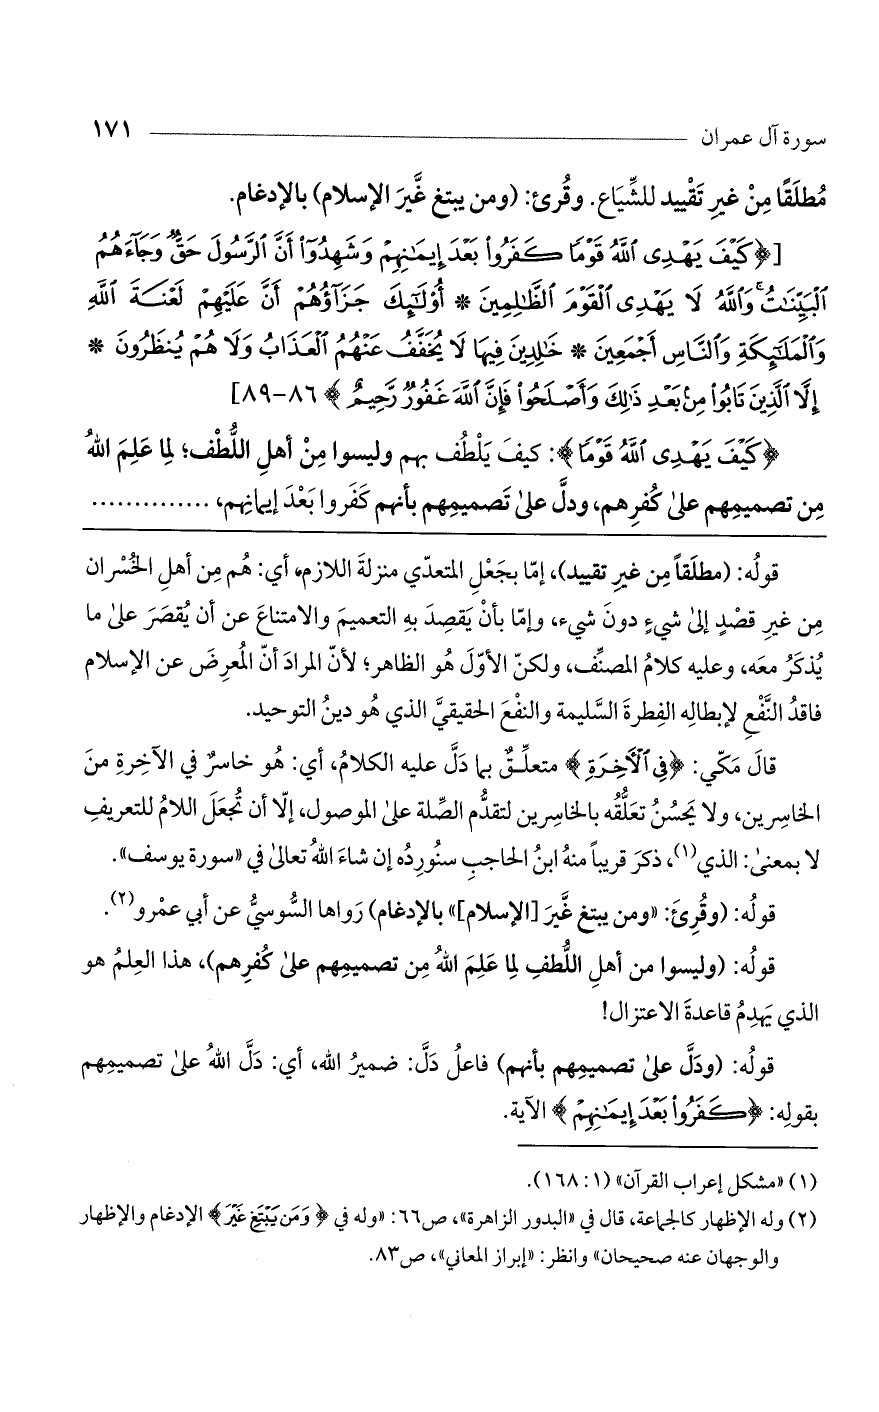 سورة آل عمران ١٧١
مُطلَقًا مِنْ غيرِ تَقْييد للشِّيَاع. وقُرئ: (ومن يبتغ غَّيرَ الإسلام) بالإدغام.
[﴿كَيْفَ يَهْدِى ٱللَّهُ قَوْمًا كَفَرُوا۟ بَعْدَ إِيمَـٰنِهِمْ وَشَهِدُوٓا۟ أَنَّ ٱلرَّسُولَ حَقٌّ وَجَآءَهُمُ
ٱلْبَيِّنَـٰتُ ۚ وَٱللَّهُ لَا يَهْدِى ٱلْقَوْمَ ٱلظَّـٰلِمِينَ * أُو۟لَـٰٓئِكَ جَزَآؤُهُمْ أَنَّ عَلَيْهِمْ لَعْنَةَ ٱللَّهِ
وَٱلْمَلَـٰٓئِكَةِ وَٱلنَّاسِ أَجْمَعِينَ * خَـٰلِدِينَ فِيهَا لَا يُخَفَّفُ عَنْهُمُ ٱلْعَذَابُ وَلَا هُمْ يُنظَرُونَ *
إِلَّا ٱلَّذِينَ تَابُوا۟ مِنۢ بَعْدِ ذَٰلِكَ وَأَصْلَحُوا۟ فَإِنَّ ٱللَّهَ غَفُورٌ رَّحِيمٌ﴾ ٨٦-٨٩]
﴿كَيْفَ يَهْدِى ٱللَّهُ قَوْمًا﴾: كيفَ يَلْطُف بهم وليسوا مِنْ أهلِ اللُّطْف؛ لِما عَلِمَ اللهُ
مِن تصميمِهم علىٰ كُفرِهم، ودلَّ علىٰ تَصميمِهم بأنهم كَفَروا بَعْدَ إيمانِهم، ..............
قولُه: (مطلَقاً مِن غيرِ تقييد)، إمّا بجَعْلِ المتعدّي منزلةَ اللازم، أي: هُم مِن أهلِ الخُسْران
مِن غيرِ قصْدٍ إلىٰ شيءٍ دونَ شيء، وإمّا بأنْ يَقصِدَ بهِ التعميمَ والامتناعَ عن أن يُقصَرَ علىٰ ما
يُذكَرُ معَه، وعليه كلامُ المصنِّف، ولكنّ الأوّلَ هُو الظاهر؛ لأنّ المرادَ أنّ المُعرِضَ عن الإسلام
فاقدُ النَّفْعِ لإبطالِه الفِطرةَ السَّليمة والنفْعَ الحقيقيَّ الذي هُو دينُ التوحيد.
قالَ مَكّي: ﴿فِى ٱلْـَٔاخِرَةِ﴾ متعلِّقٌ بما دَلَّ عليه الكلامُ، أي: هُو خاسرٌ في الآخِرةِ منَ
الخاسِرين، ولا يَحسُنُ تعلُّقُه بالخاسِرين لتقدُّم الصِّلة علىٰ الموصول، إلّا أن تُجعَلَ اللامُ للتعريفِ
لا بمعنىٰ: الذي(١)، ذكرَ قريباً منهُ ابنُ الحاجبِ سنُورِدُه إن شاءَ اللهُ تعالىٰ في «سورة يوسف».
قولُه: (وقُرِئَ: «ومن يبتغ غَّيرَ [الإسلام]» بالإدغام) رَواها السُّوسيُّ عن أبي عمْرو(٢).
قولُه: (وليسوا من أهلِ اللُّطفِ لِما عَلِمَ اللهُ مِن تصميمِهم علىٰ كُفرِهم)، هذا العِلمُ هو
الذي يَهدِمُ قاعدةَ الاعتزال!
قولُه: (ودَلَّ علىٰ تصميمِهم بأنهم) فاعلُ دَلَّ: ضميرُ الله، أي: دَلَّ اللهُ علىٰ تصميمِهم
بقولِه: ﴿كَفَرُوا۟ بَعْدَ إِيمَـٰنِهِمْ﴾ الآية.
(١) «مشكل إعراب القرآن» (١: ١٦٨).
(٢) وله الإظهار كالجماعة، قال في «البدور الزاهرة»، ص٦٦: «وله في ﴿وَمَن يَبْتَغِ غَيْرَ﴾ الإدغام والإظهار
والوجهان عنه صحيحان» وانظر: «إبراز المعاني»، ص٨٣.